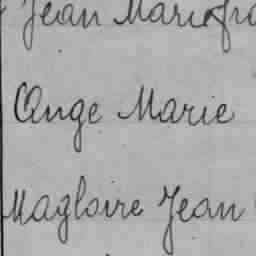 Jean Marie
Ange Marie
Magloire Jean